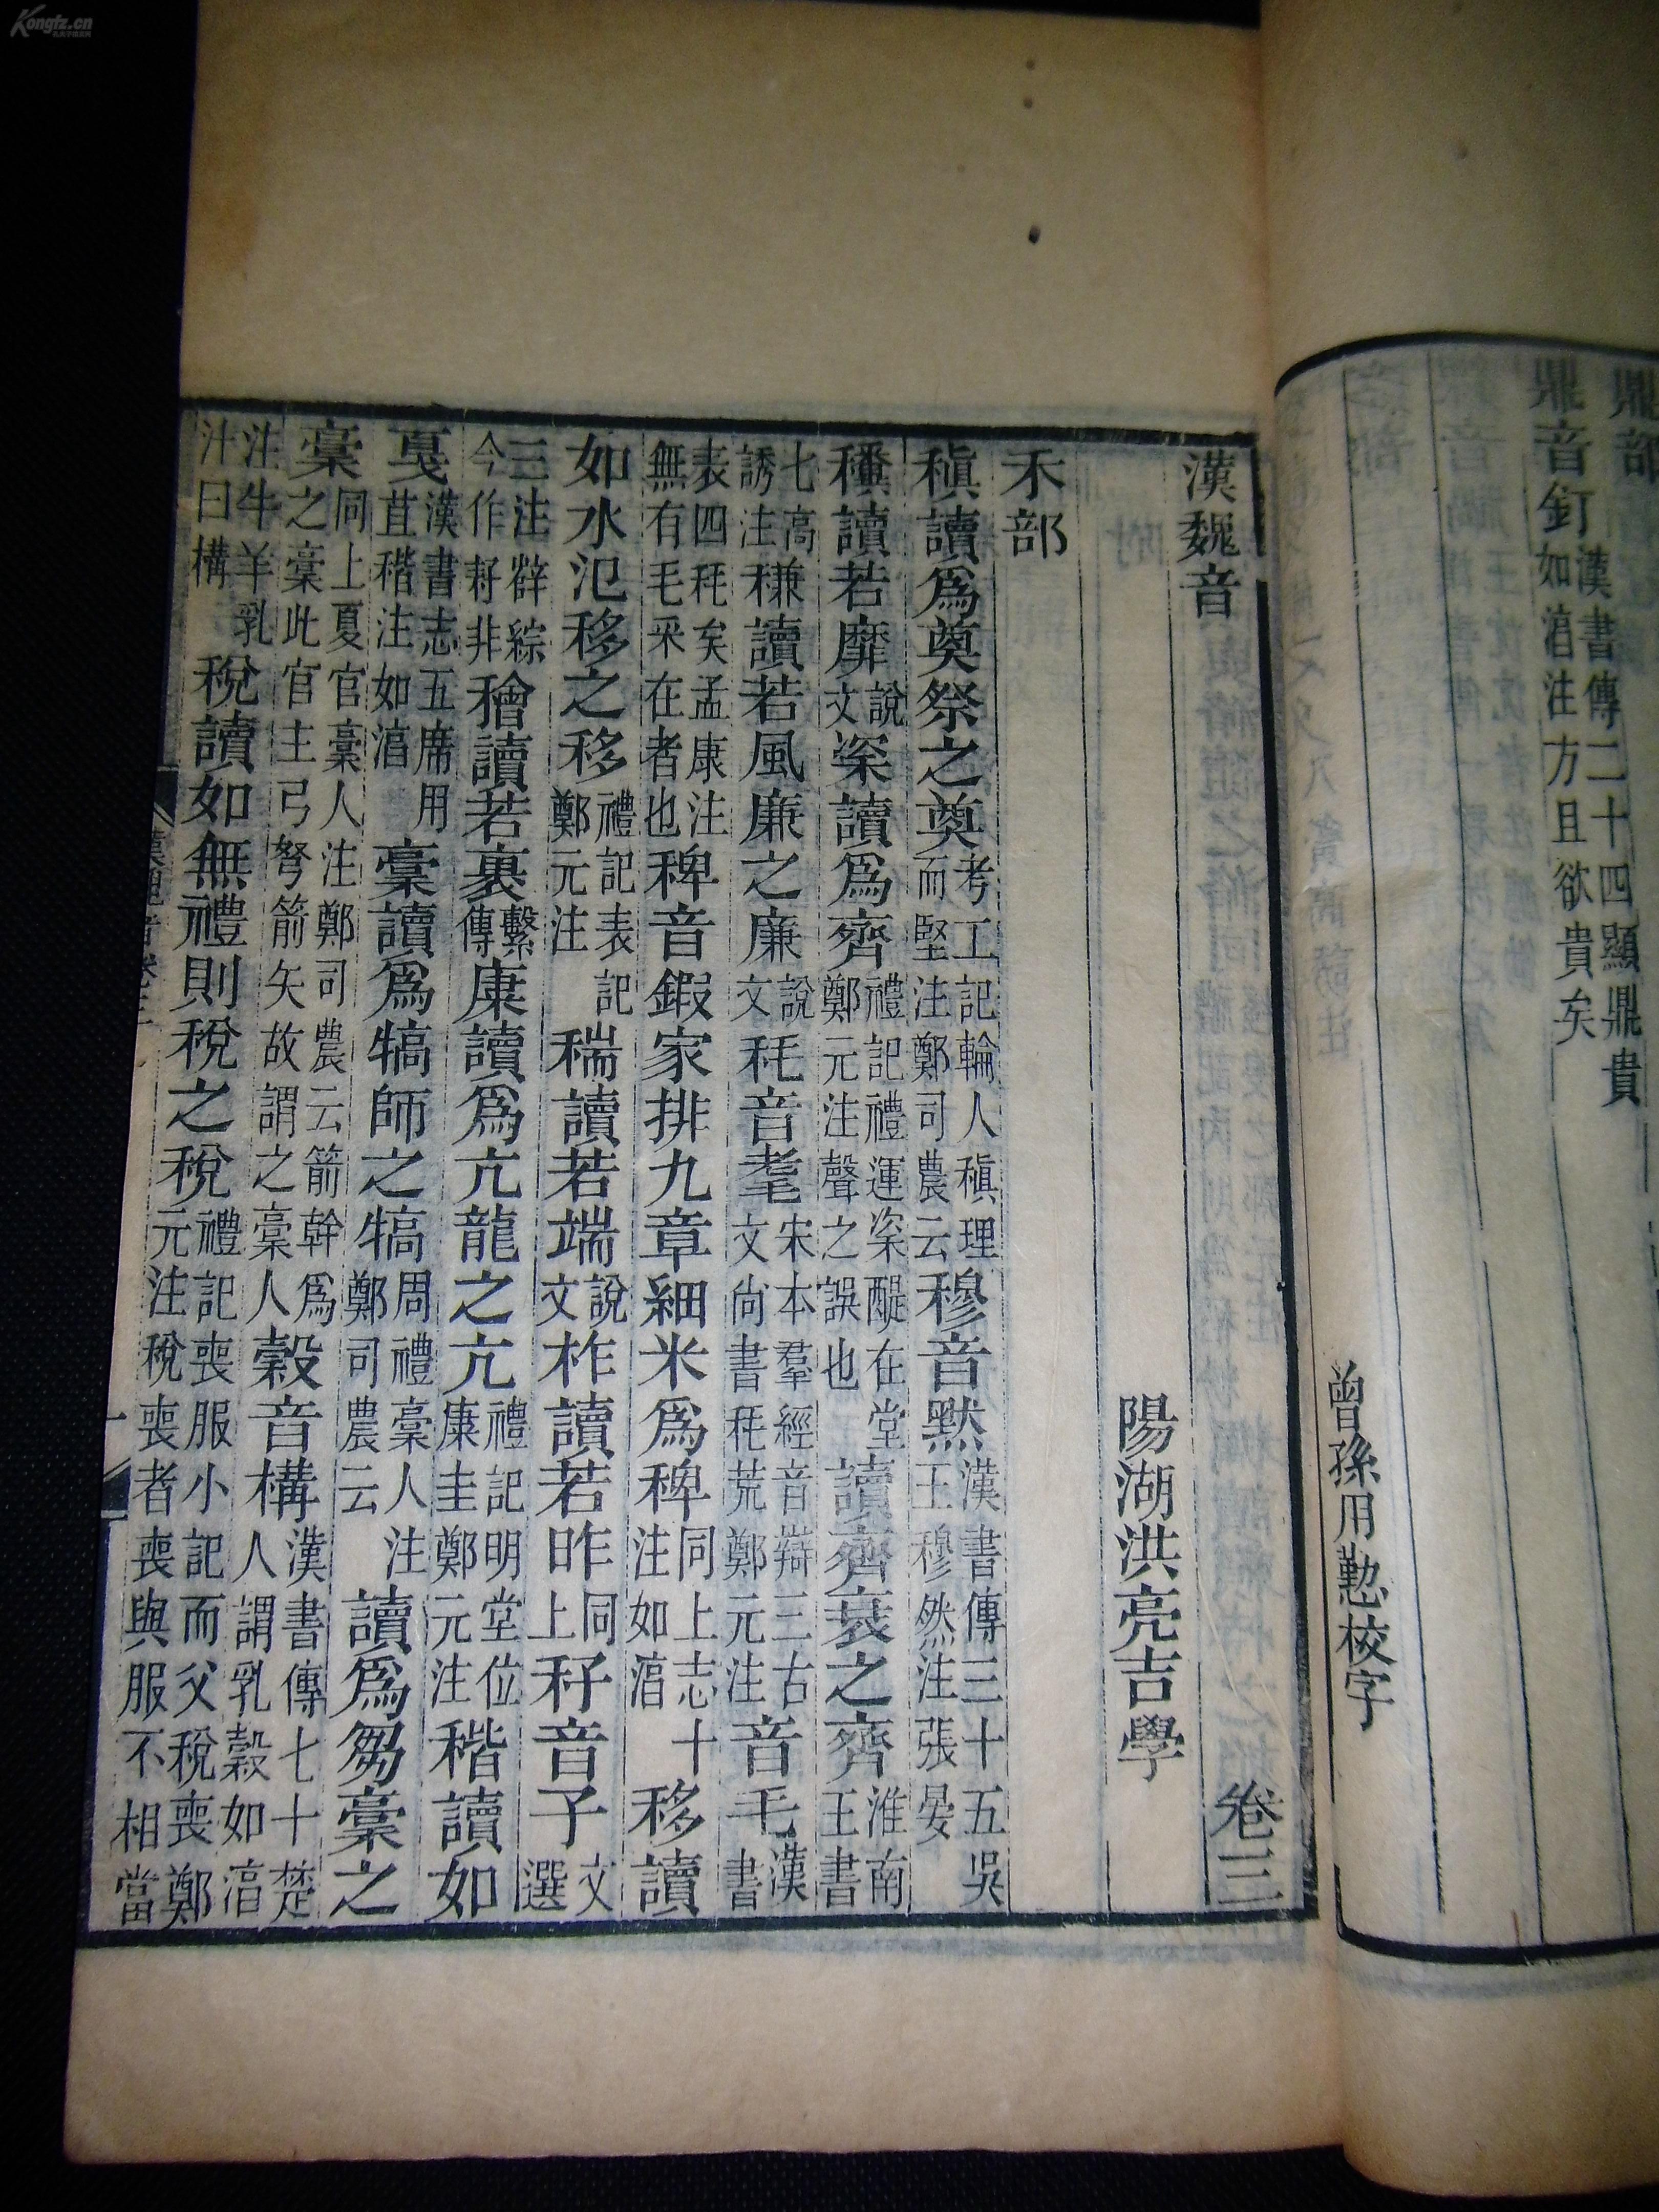 鼎部
鼎音釘漢書傳二十四顯鼎貴如湻注方且欲貴矣
曾孫用懃校字
漢魏音 卷三
陽湖洪亮吉學
禾部
稹讀爲奠祭之奠考工記輪人稹理而堅注鄭司農云穆音默漢書傳三十五吳王穆然注張晏
讀若靡說文粢讀爲齊禮記禮運粢醍在堂鄭元注聲之誤也讀齊衰之齊淮南王書
七高誘注稴讀若風廉之廉說文秏音耄宋本羣經音辯三古文尚書秏荒鄭元注音毛漢書
表四秏矣孟康注無有毛米在者也稗音鍜家排九章細米爲稗同上志十注如湻移讀
如水氾移之移禮記表記鄭元注䅥讀若端說文秨讀若昨同上秄音子文選
三注薛綜今作耔非讀若裹繫傳康讀爲亢龍之亢禮記明堂位康圭鄭元注稭讀如
戛漢書志五席用苴稭注如湻稾讀爲犒師之犒周禮稾人注鄭司農云讀爲芻稾之
稾同上夏官稾人注鄭司農云箭幹爲之稾此官主弓弩箭矢故謂之稾人穀音構漢書傳七十楚人謂乳穀如湻
注牛羊乳汁曰構稅讀如無禮則稅之稅禮記喪服小記而父稅喪鄭元注稅喪者喪與服不相當
漢魏音卷三
一
Kongfz.cn